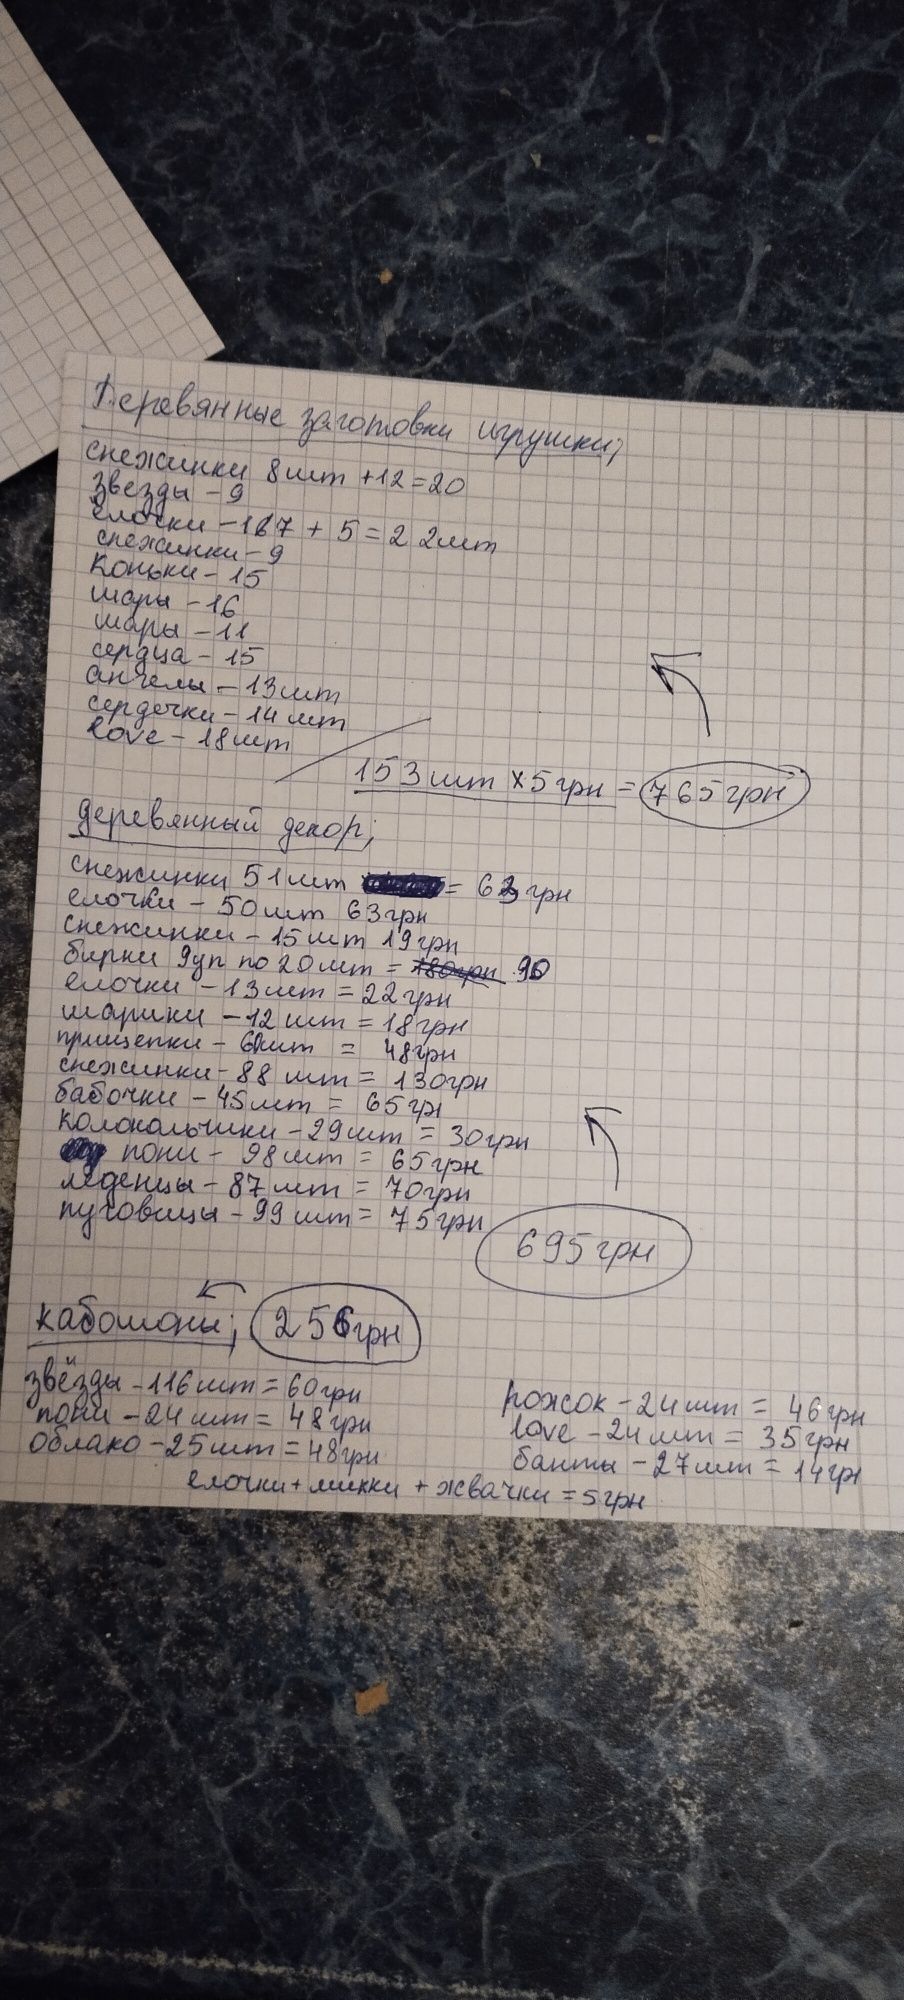 Деревянные заготовки игрушки;
снежинки 8шт +12=20
звезды -9
ёлочки -167 + 5 = 22шт
снежинки -9
коньки -15
шары -16
шары -11
сердца -15
ангелы -13шт
сердечки -14 шт
love -18шт
153шт x5грн = 765грн
деревянный декор;
снежинки 51шт = 63грн
елочки -50шт 63грн
снежинки -15шт 19грн
бирки 9уп по 20шт = 180грн 90
елочки -13шт = 22грн
шарики -12шт = 18грн
прищепки - шт = 48грн
снежинки - 88 шт = 130грн
бабочки -45шт = 65гр
колокольчики -29шт = 30грн
пони - 98шт = 65грн
леденцы -87шт = 70грн
пуговицы -99шт = 75грн
695грн
кабошоны; 256грн
звёзды -116шт = 60грн
пони -24шт = 48грн
облако -25шт = 48грн
рожок -24шт = 46грн
love -24шт = 35грн
банты -27шт = 14гр
елочки + микки + жвачки = 5грн